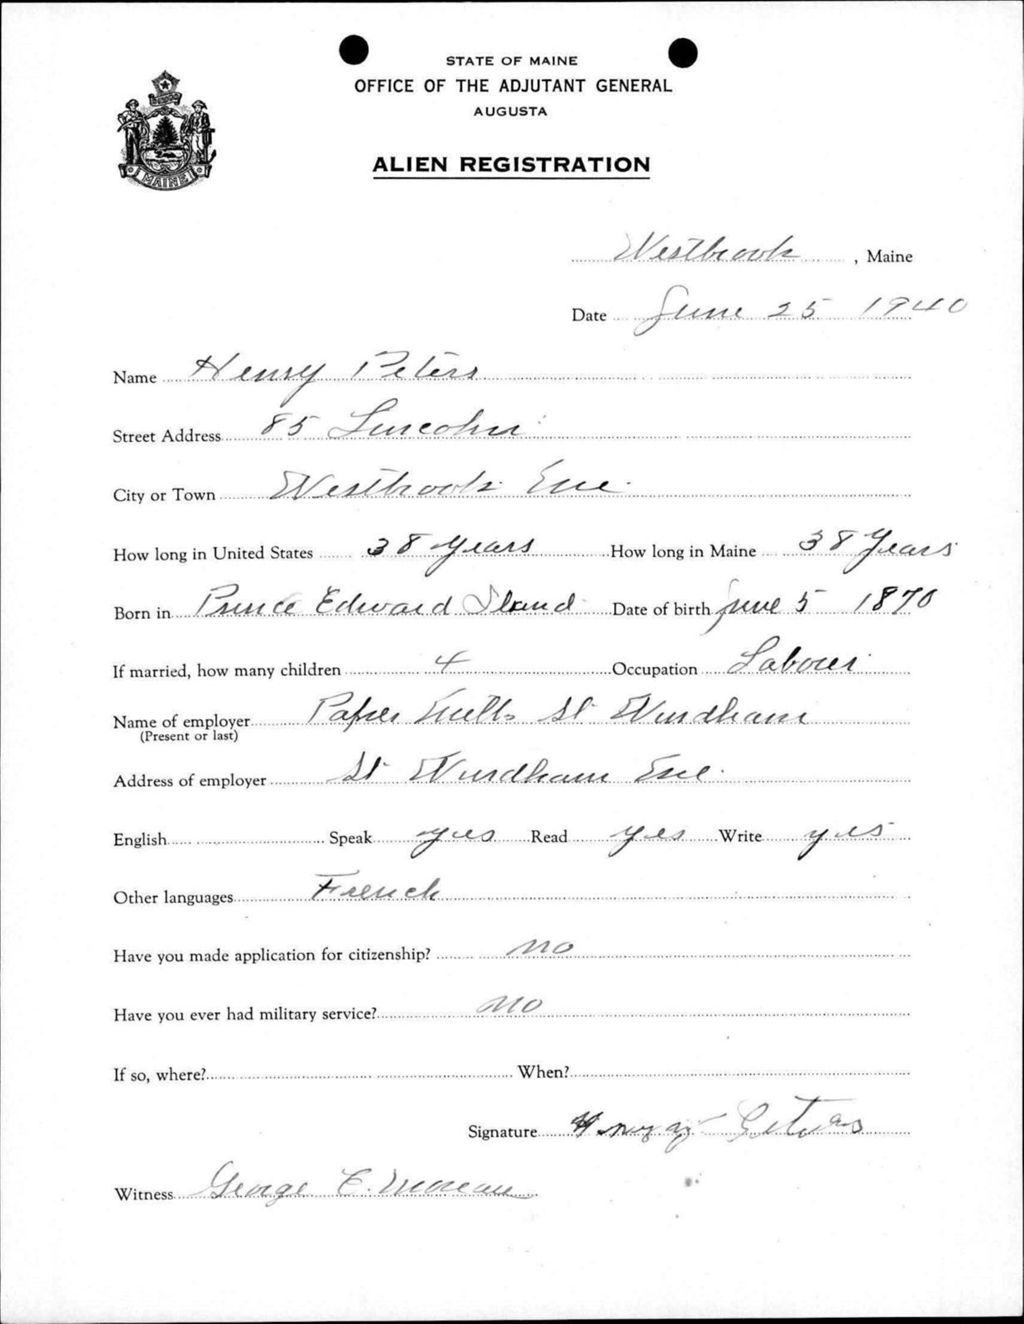 STATE OF MAINE
OFFICE OF THE ADJUTANT GENERAL
AUGUSTA
MAINE
ALIEN REGISTRATION
Westbrook, Maine
Date June 25 1940
Name Henry Peters
Street Address 85 Lincoln
City or Town Westbrook Me.
How long in United States 38 Years How long in Maine 38 Years
Born in Prince Edward Island Date of birth June 5 1870
If married, how many children 4 Occupation Laborer
Name of employer Paper Mills So Windham
(Present or last)
Address of employer So Windham Me.
English Speak yes Read yes Write yes
Other languages French
Have you made application for citizenship? no
Have you ever had military service? no
If so, where? When?
Signature Henry Peters
Witness George E. Moreau